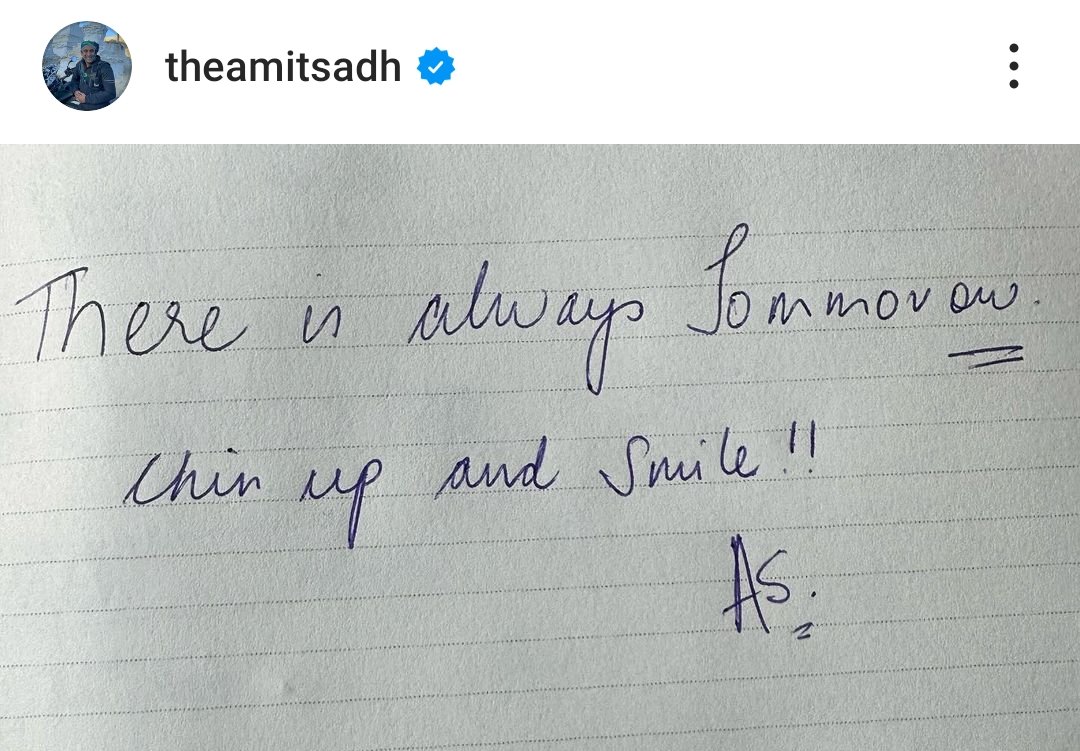 theamitsadh
There is always Tommorow.
Chin up and Smile!!
AS.